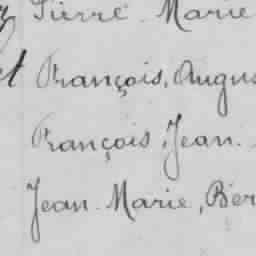 Pierre Marie
et François, Augus
François, Jean.
Jean Marie, Ber